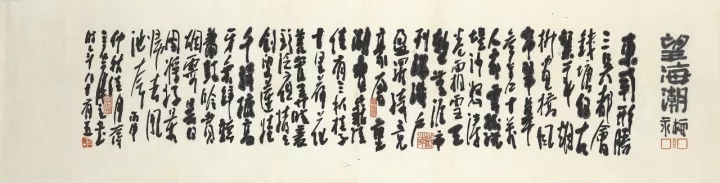 望海潮
柳永
東南形勝
三吳都會
錢塘自古
繁華煙
柳畫橋風
簾翠幕
參差十萬
人家雲樹繞
堤沙怒濤
卷霜雪天
塹無涯市
列珠璣戶
盈羅綺競
豪奢重
湖疊巘清
佳有三秋桂子
十里荷花
羌管弄晴菱
歌泛夜嬉嬉
釣叟蓮娃
千騎擁高
牙乘醉聽
簫鼓吟賞
煙霞異日
圖將好景
歸去鳳
池夸 丙申
仲秋佳月
時年八十有五